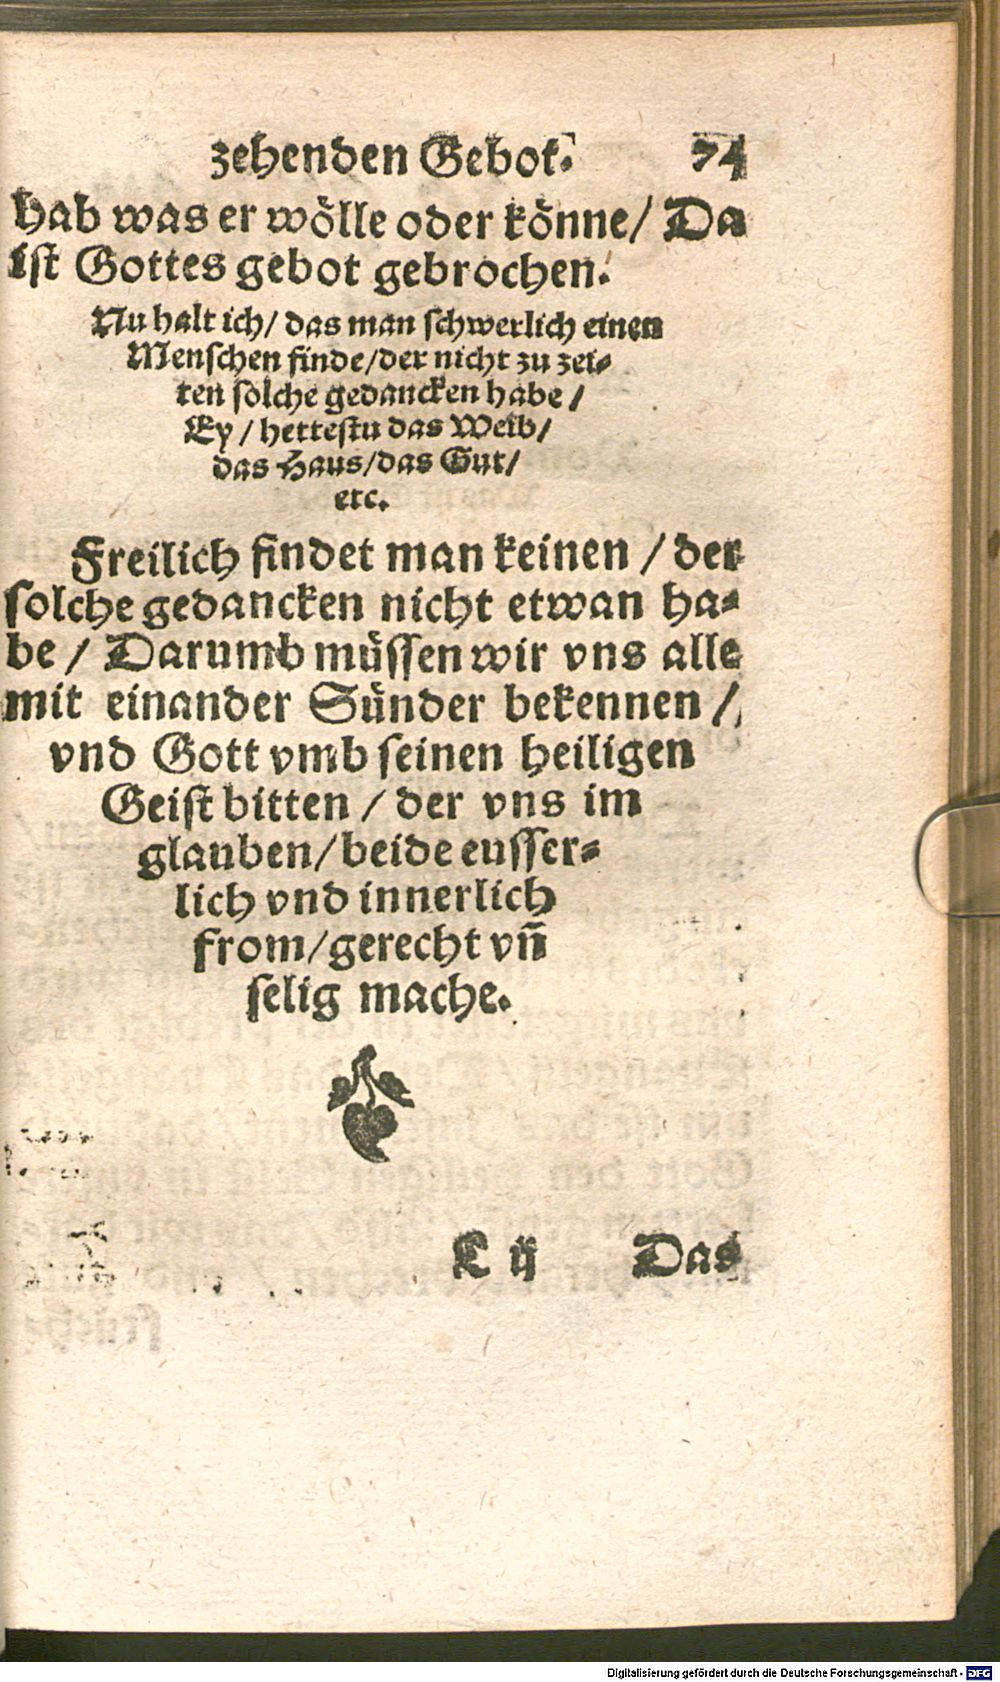 zehenden Gebot. 74
hab was er wölle oder könne/ Da
ist Gottes gebot gebrochen.
Nu halt ich/ das man schwerlich einen
Menschen finde/der nicht zu zei-
ten solche gedancken habe/
Ey/ hettestu das Weib/
das Haus/das Gut/
etc.
Freilich findet man keinen/ der
solche gedancken nicht etwan ha-
be/ Darumb müssen wir vns alle
mit einander Sünder bekennen/
vnd Gott vmb seinen heiligen
Geist bitten/ der vns im
glauben/beide eusser-
lich vnd innerlich
from/gerecht vn̄
selig mache.
L ij Das
Digitalisierung gefördert durch die Deutsche Forschungsgemeinschaft - DFG